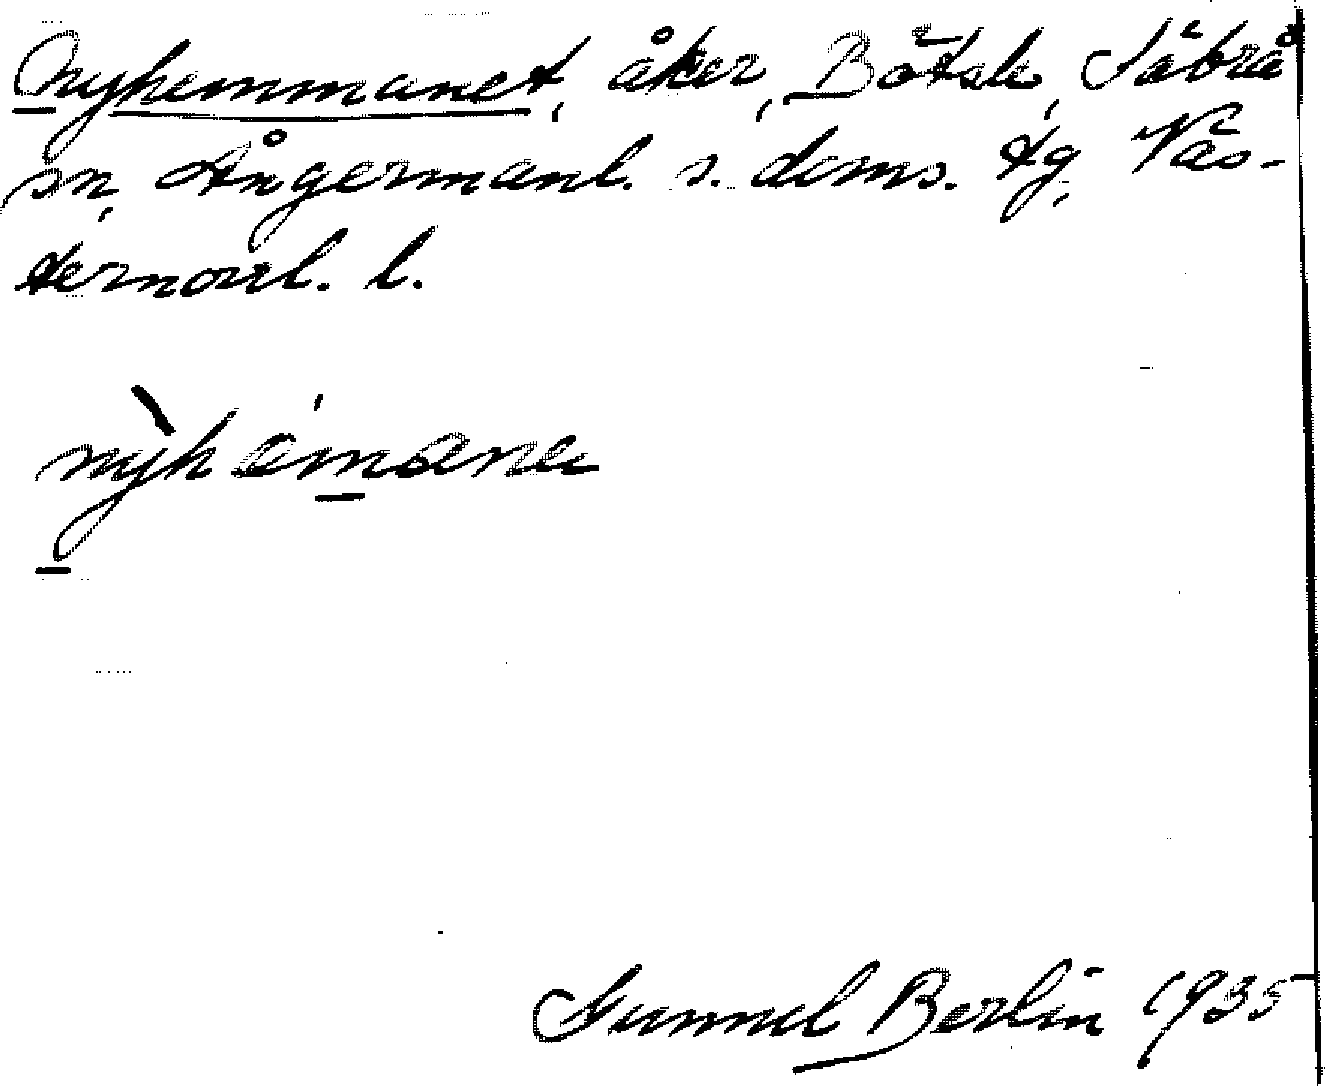 Nyhemmanet, åker, Bötsle, Säbrå
sn, Ångermanl. s. doms. tg, Väs-
ternorrl. l.
nỳhemana
Gunnel Berlin 1935